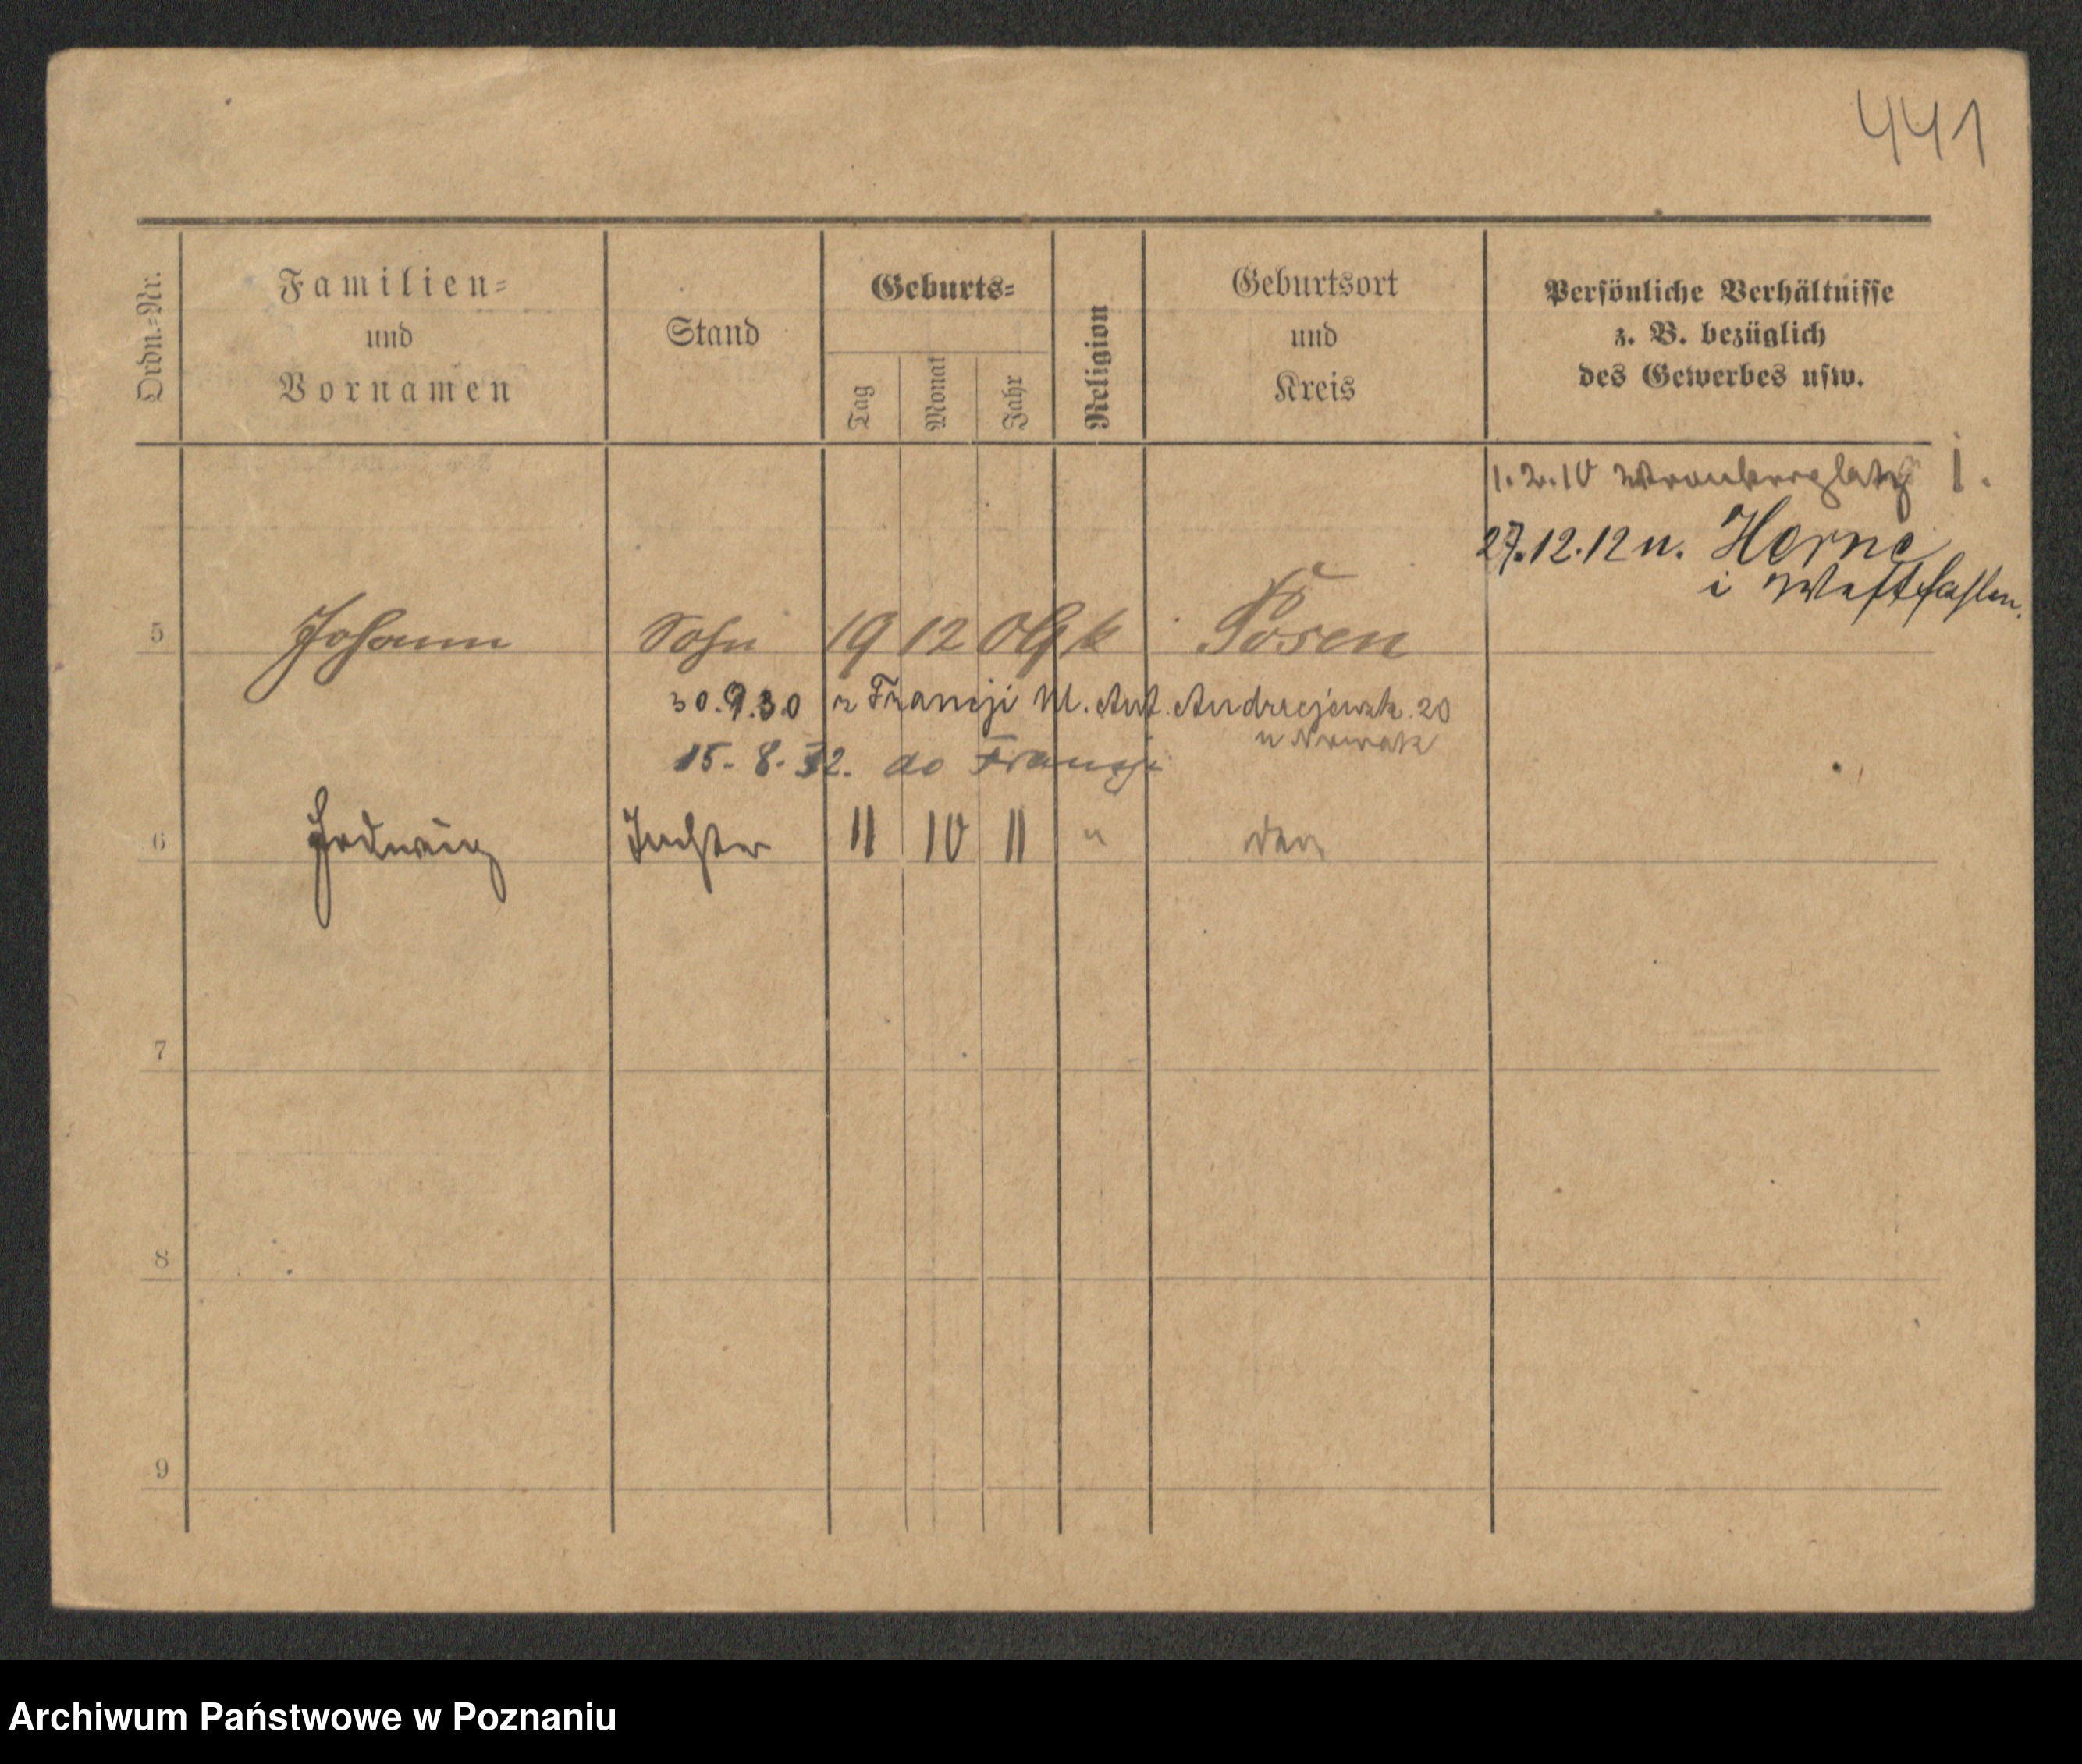 441
Ordn.=Nr.
Familien=
und
Vornamen
Stand
Geburts=
Tag
Monat
Jahr
Religion
Geburtsort
und
Kreis
Persönliche Verhältnisse
z. B. bezüglich
des Gewerbes usw.
1.2.10 Wronkerplatz 1.
27.12.12 n. Herne
i Westfahlen.
5 Johann Sohn 19 12 09 k Posen
30.9.30 z Francji M. Ant. Andrzejewsk. 20
u Nowak
15.8.32. do Francji
6 Hedwig Tochter 11 10 11 "
7
8
9
Archiwum Państwowe w Poznaniu